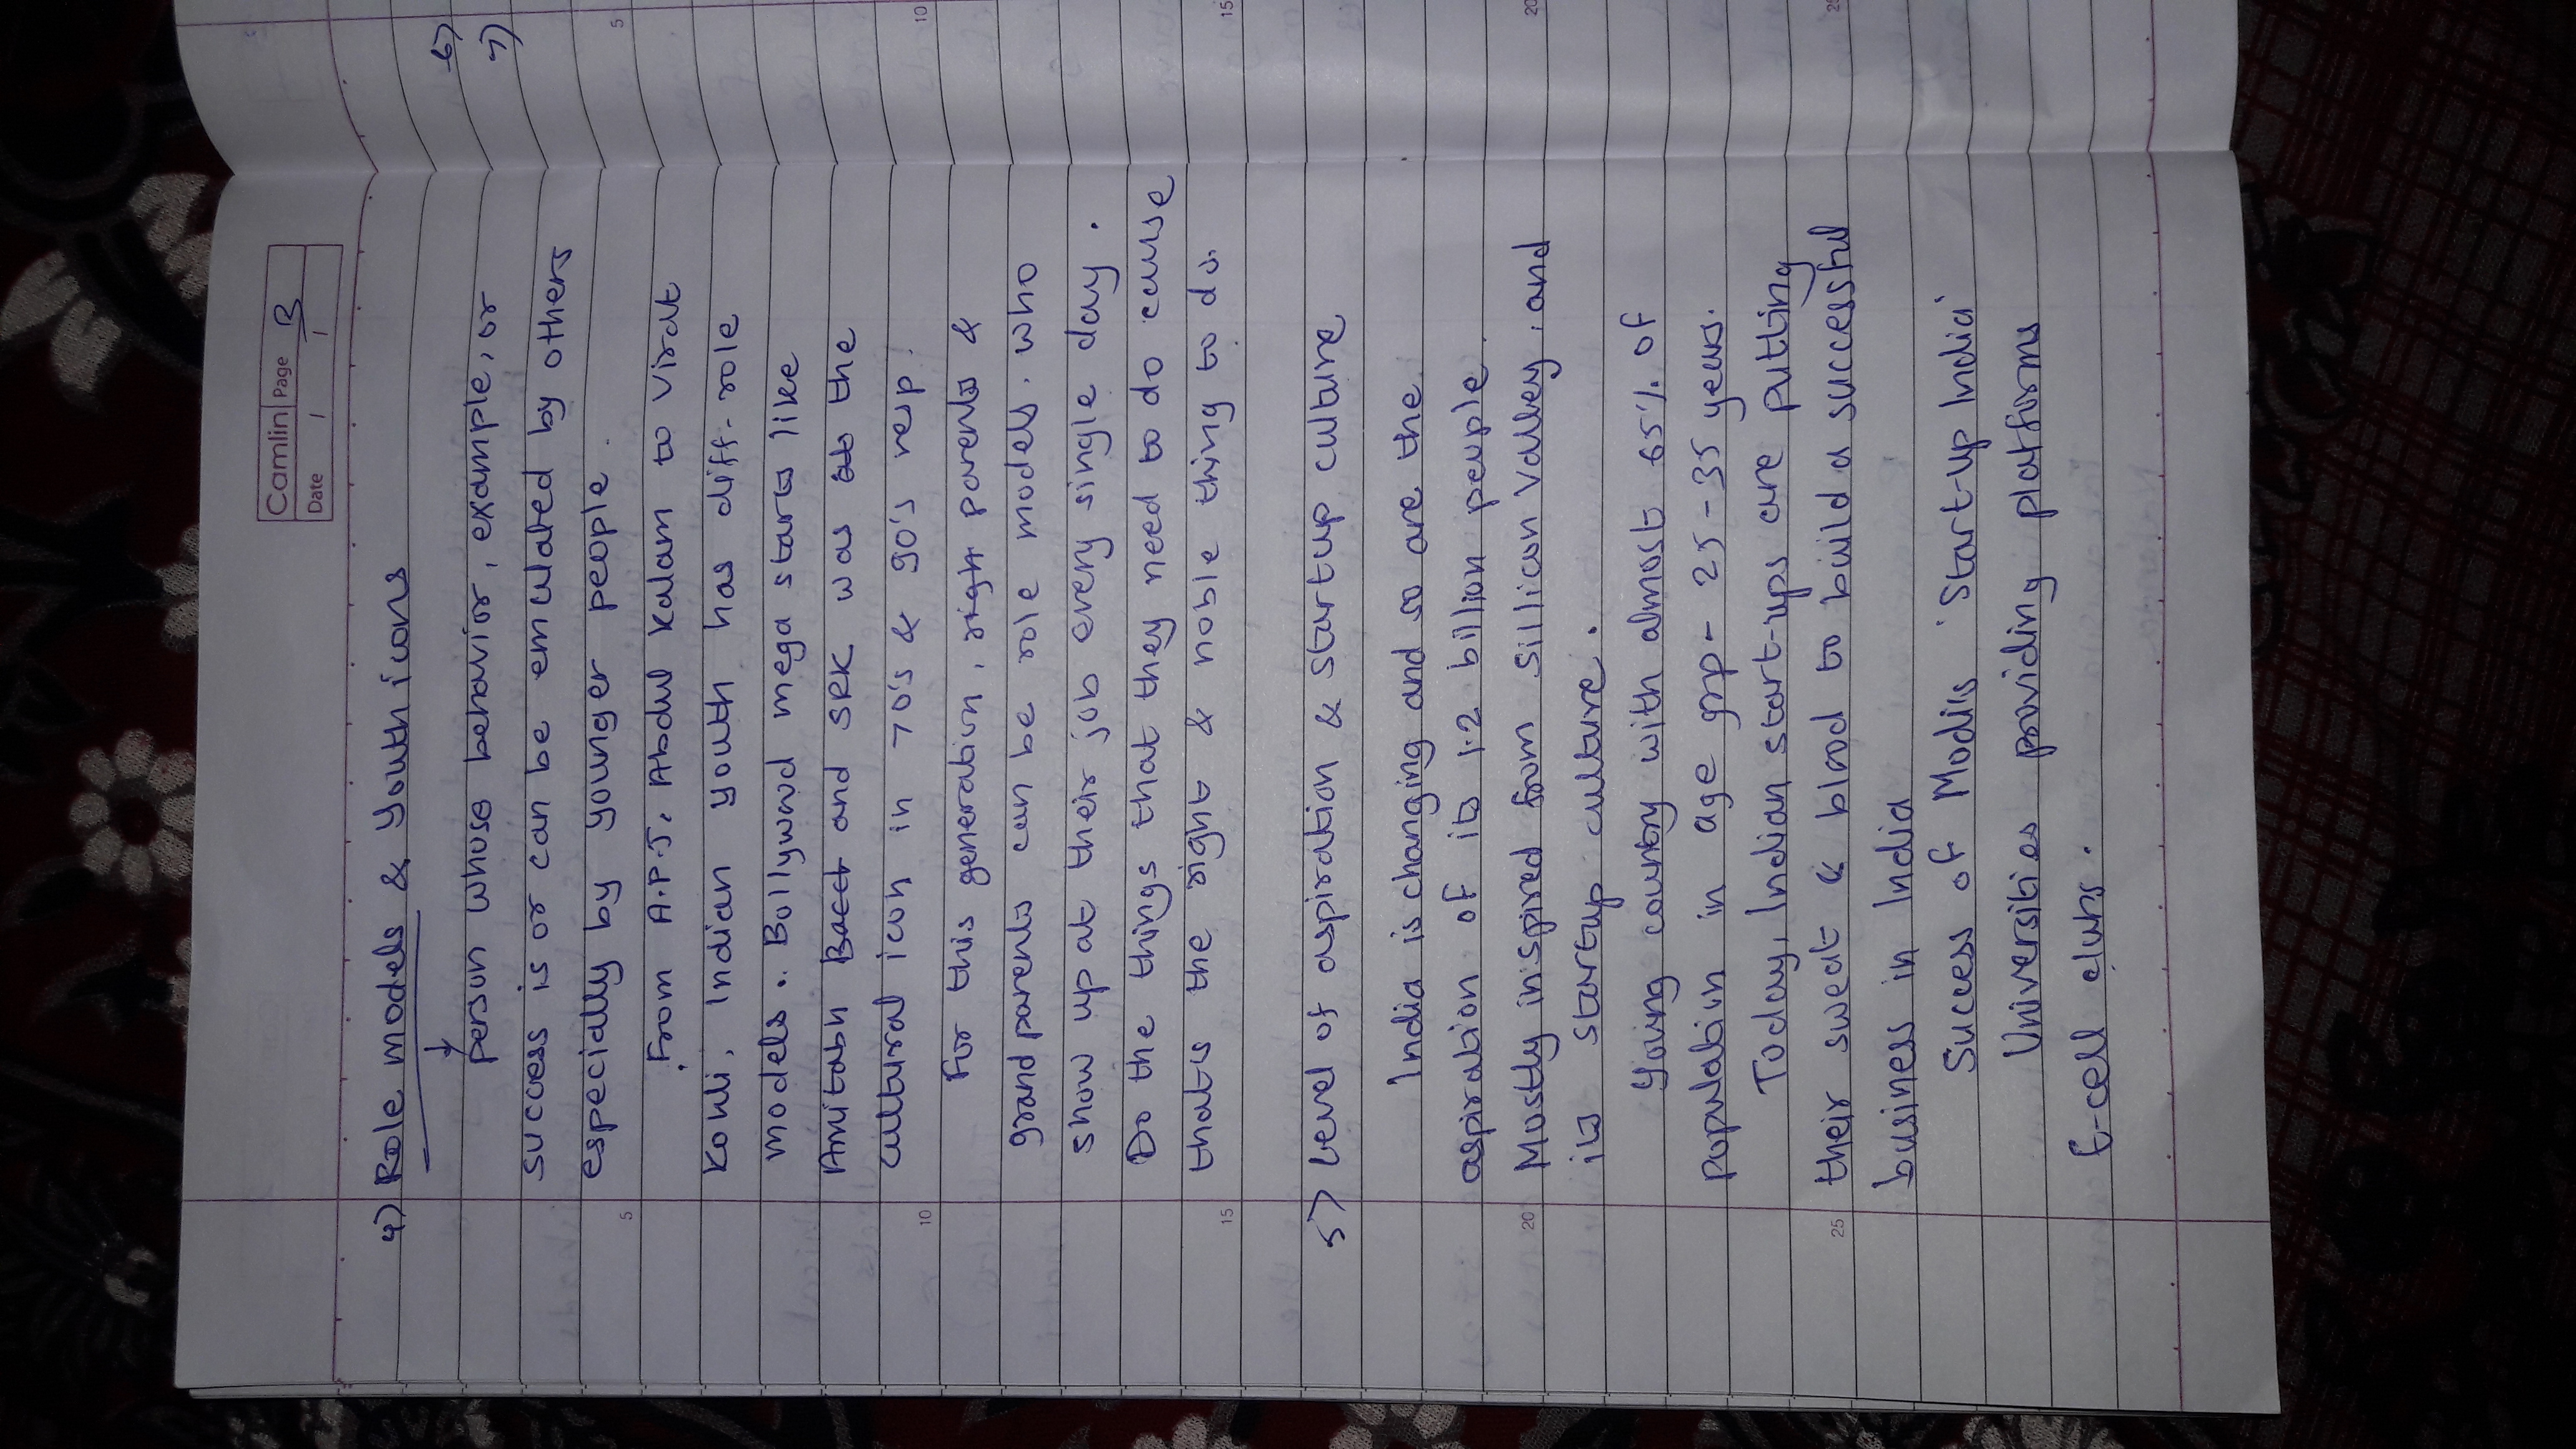 Camlin Page 3
Date / /
4) Role models & Youth icons
person whose behavior, example, or
success is or can be emulated by others
especially by younger people.
From A.P.J. Abdul Kalam to Virat
Kohli, Indian youth has diff- role
models.. Bollywood mega starts like
Amitabh and SRK was the
cultural icon in 70's & 90's resp.
For this generation, parents &
grandparents can be role models. who
show up at their job every single day.
Do the things that they need to do cause
that's the right & noble thing to do.
5) Level of aspiration & startup culture
India is changing and so are the
aspiration of its 1.2 billion people.
Mostly inspired from Sillicon Valley, and
its startup culture.
Young country with almost 65% of
population in age grp- 25-35 years.
Today, Indian start-ups are putting
their sweat & blood to build a successful
business in India
Success of Modi's 'Start-up India'
Universities providing platforms
E-cell clubs.
6)
7)
5
10
15
20
25
5
10
15
20